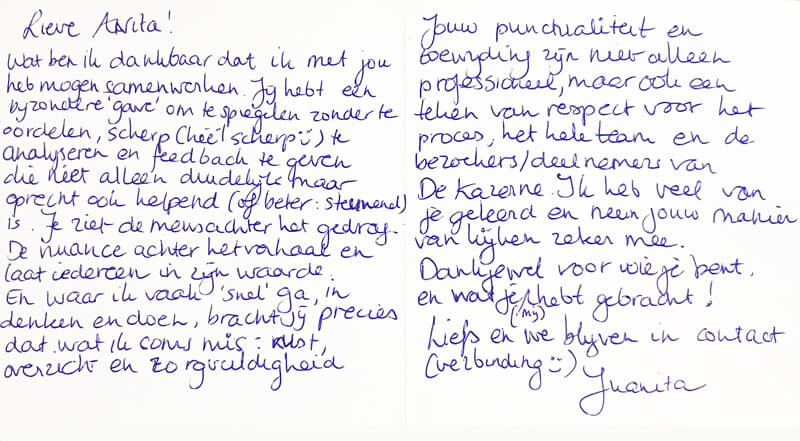 Lieve Anita!
Wat ben ik dankbaar dat ik met jou
heb mogen samenwerken. Jij hebt een
bijzondere 'gave' om te spiegelen zonder te
oordelen, scherp (héél scherp :)) te
analyseren en feedback te geven
die niet alleen duidelijk maar
oprecht ook helpend (of beter: steunend)
is. Je ziet de mens achter het gedrag.
De nuance achter het verhaal en
laat iedereen in zijn waarde.
En waar ik vaak 'snel' ga, in
denken en doen, bracht jij precies
dat wat ik soms mis: rust,
overzicht en zorgvuldigheid
Jouw punctualiteit en
toewijding zijn niet alleen
professioneel, maar ook een
teken van respect voor het
proces, het hele team en de
bezoekers/deelnemers van
De Kazerne. Ik heb veel van
je geleerd en neem jouw manier
van kijken zeker mee.
Dankjewel voor wie je bent,
en wat je (mij) hebt gebracht!
Liefs en we blijven in contact
(verbinding :))
Juanita